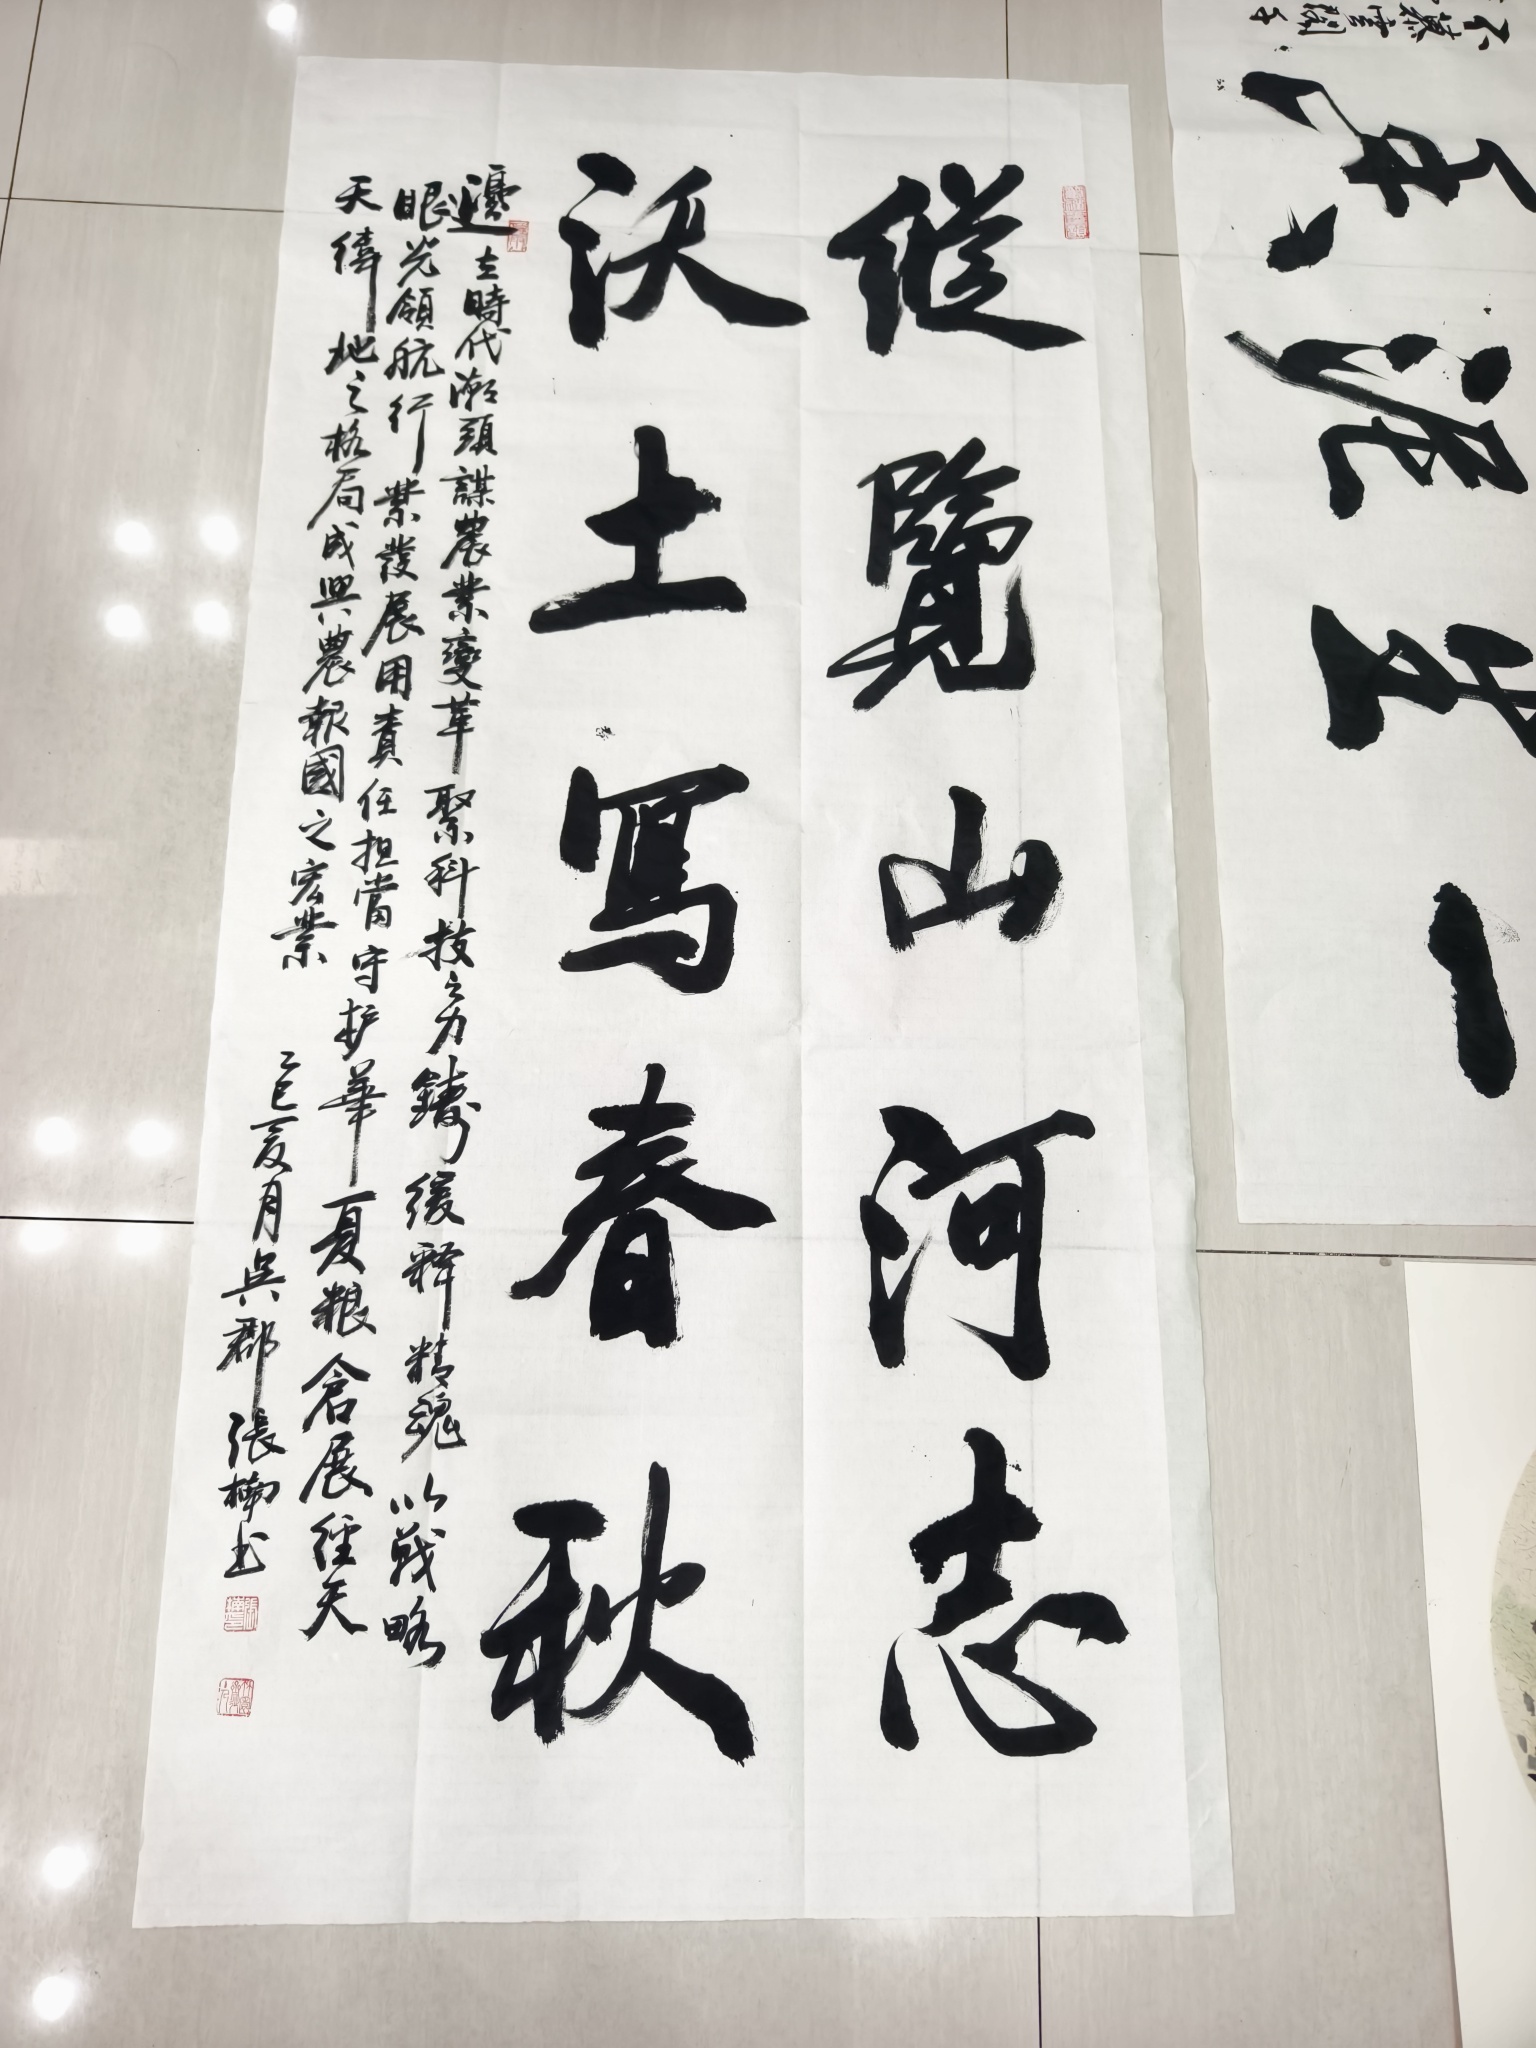 縱覽山河志
沃土寫春秋
立時代潮頭謀農業變革聚科技之力鑄緩釋精魂以戰略
眼光領航行業發展用責任担當守护華夏粮倉展經天
天緯地之格局成興農報國之宏業
乙巳夏月吳郡張楠书